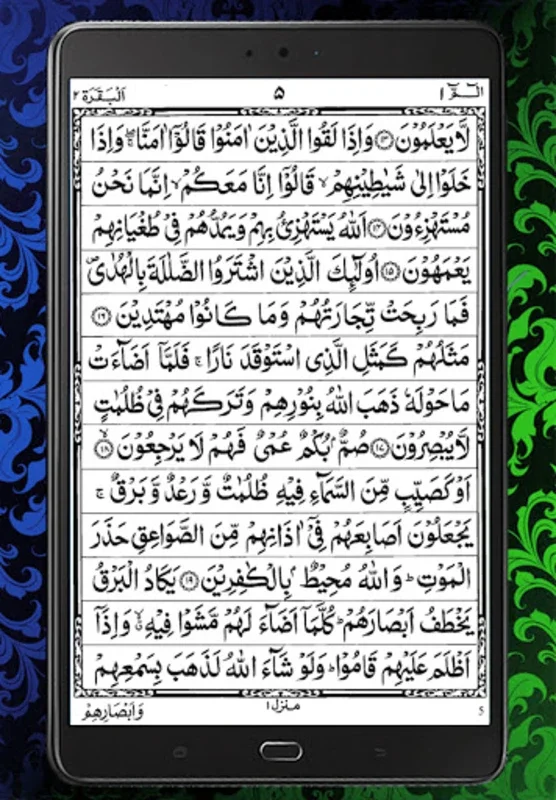 الٓمّٓ ١ ٥ اَلْبَقَرَة ٢
لَّا یَعْلَمُوْنَ ۝١٣ وَ اِذَا لَقُوا الَّذِیْنَ اٰمَنُوْا قَالُوْۤا اٰمَنَّا ۖۚ وَ اِذَا
خَلَوْا اِلٰى شَیٰطِیْنِهِمْ ۙ قَالُوْۤا اِنَّا مَعَكُمْ ۙ اِنَّمَا نَحْنُ
مُسْتَهْزِءُوْنَ ۝١٤ اَللّٰهُ یَسْتَهْزِئُ بِهِمْ وَ یَمُدُّهُمْ فِیْ طُغْیَانِهِمْ
یَعْمَهُوْنَ ۝١٥ اُولٰٓىِٕكَ الَّذِیْنَ اشْتَرَوُا الضَّلٰلَةَ بِالْهُدٰى ۪
فَمَا رَبِحَتْ تِّجَارَتُهُمْ وَ مَا كَانُوْا مُهْتَدِیْنَ ۝١٦
مَثَلُهُمْ كَمَثَلِ الَّذِی اسْتَوْقَدَ نَارًا ۚ فَلَمَّاۤ اَضَآءَتْ
مَا حَوْلَهٗ ذَهَبَ اللّٰهُ بِنُوْرِهِمْ وَ تَرَكَهُمْ فِیْ ظُلُمٰتٍ
لَّا یُبْصِرُوْنَ ۝١٧ صُمٌّۢ بُكْمٌ عُمْیٌ فَهُمْ لَا یَرْجِعُوْنَ ۝١٨ ۙ
اَوْ كَصَیِّبٍ مِّنَ السَّمَآءِ فِیْهِ ظُلُمٰتٌ وَّ رَعْدٌ وَّ بَرْقٌ ۚ
یَجْعَلُوْنَ اَصَابِعَهُمْ فِیْۤ اٰذَانِهِمْ مِّنَ الصَّوَاعِقِ حَذَرَ
الْمَوْتِ ؕ وَ اللّٰهُ مُحِیْطٌۢ بِالْكٰفِرِیْنَ ۝١٩ یَكَادُ الْبَرْقُ
یَخْطَفُ اَبْصَارَهُمْ ؕ كُلَّمَاۤ اَضَآءَ لَهُمْ مَّشَوْا فِیْهِ ۙۗ وَ اِذَاۤ
اَظْلَمَ عَلَیْهِمْ قَامُوْا ؕ وَ لَوْ شَآءَ اللّٰهُ لَذَهَبَ بِسَمْعِهِمْ
5 منزل ١ وَ اَبْصَارِهِمْ